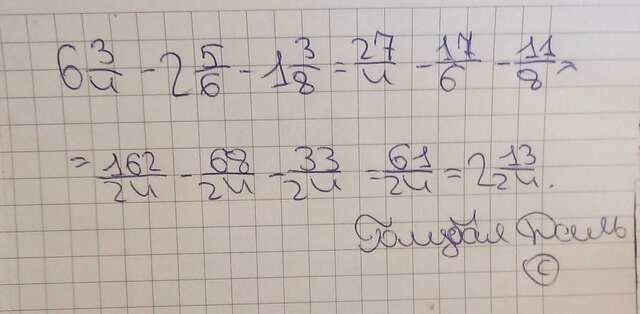 6 3/4 - 2 5/6 - 1 3/8 = 27/4 - 17/6 - 11/8 =
= 162/24 - 68/24 - 33/24 = 61/24 = 2 13/24.
Голубая Даль
©